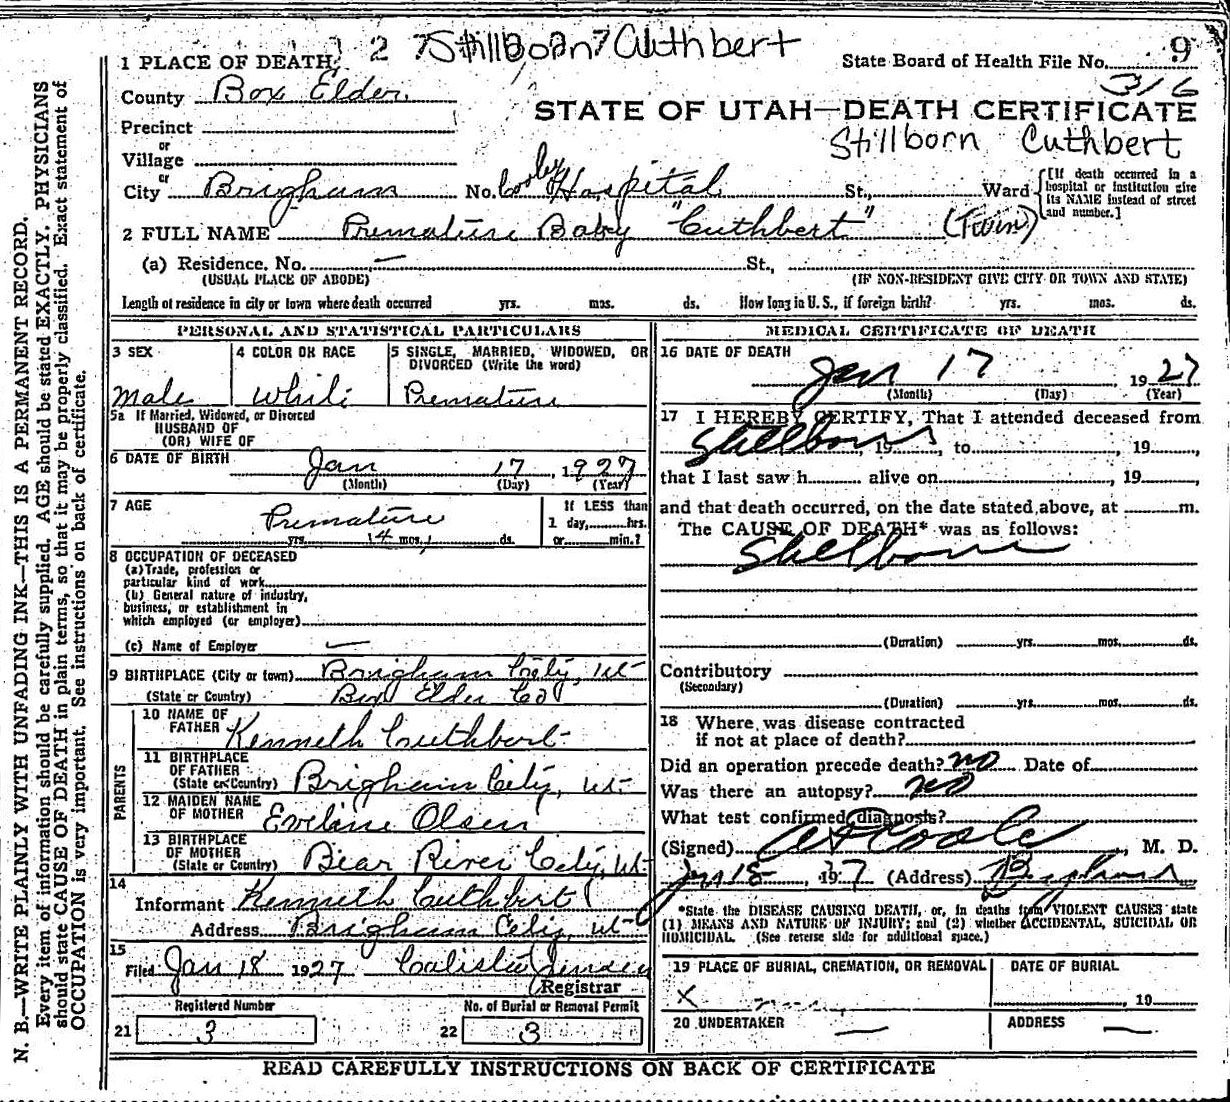 1 2 7 Stillborn 7 Cuthbert
9
State Board of Health File No.
316
1 PLACE OF DEATH
County Box Elder
STATE OF UTAH—DEATH CERTIFICATE
Stillborn Cuthbert
Precinct
or
Village
or
City Brigham No. Cooley Hospital St., Ward
[If death occurred in a
hospital or institution give
its NAME instead of street
and number.]
2 FULL NAME Premature Baby "Cuthbert" (Twin)
(a) Residence. No. — St.,
(USUAL PLACE OF ABODE) (IF NON-RESIDENT GIVE CITY OR TOWN AND STATE)
Length of residence in city or town where death occurred yrs. mos. ds. How long in U. S., if foreign birth? yrs. mos. ds.
PERSONAL AND STATISTICAL PARTICULARS
3 SEX
Male
4 COLOR OR RACE
White
5 SINGLE, MARRIED, WIDOWED, OR
DIVORCED (Write the word)
Premature
5a If Married, Widowed, or Divorced
HUSBAND OF
(OR) WIFE OF
6 DATE OF BIRTH
Jan 17, 1927
(Month) (Day) (Year)
7 AGE
Premature
yrs. 4 mos. ds.
If LESS than
1 day, hrs.
or min.?
8 OCCUPATION OF DECEASED
(a) Trade, profession or
particular kind of work
(b) General nature of industry,
business, or establishment in
which employed (or employer)
(c) Name of Employer —
9 BIRTHPLACE (City or town) Brigham City, Ut
(State or Country) Box Elder Co
PARENTS
10 NAME OF
FATHER Kenneth Cuthbert
11 BIRTHPLACE
OF FATHER
(State or Country) Brigham City, Ut
12 MAIDEN NAME
OF MOTHER Eveline Olsen
13 BIRTHPLACE
OF MOTHER
(State or Country) Bear River City, Ut
14
Informant Kenneth Cuthbert
Address Brigham City, Ut
15
Filed Jan 18 1927 Calista Jensen
Registrar
Registered Number
21 3
No. of Burial or Removal Permit
22 3
MEDICAL CERTIFICATE OF DEATH
16 DATE OF DEATH
Jan 17, 1927
(Month) (Day) (Year)
17 I HEREBY CERTIFY, That I attended deceased from
Stillborn, 19, to, 19,
that I last saw h alive on, 19,
and that death occurred, on the date stated above, at m.
The CAUSE OF DEATH* was as follows:
Stillborn
(Duration) yrs. mos. ds.
Contributory
(Secondary)
(Duration) yrs. mos. ds.
18 Where was disease contracted
if not at place of death?
Did an operation precede death? no Date of
Was there an autopsy? no
What test confirmed diagnosis?
(Signed), M. D.
Jan 18, 1927 (Address) Brigham
*State the DISEASE CAUSING DEATH, or, in deaths from VIOLENT CAUSES state
(1) MEANS AND NATURE OF INJURY; and (2) whether ACCIDENTAL, SUICIDAL OR
HOMICIDAL. (See reverse side for additional space.)
19 PLACE OF BURIAL, CREMATION, OR REMOVAL
X
DATE OF BURIAL
, 19
20 UNDERTAKER
—
ADDRESS
—
READ CAREFULLY INSTRUCTIONS ON BACK OF CERTIFICATE
N. B.—WRITE PLAINLY WITH UNFADING INK—THIS IS A PERMANENT RECORD.
Every item of information should be carefully supplied. AGE should be stated EXACTLY. PHYSICIANS
should state CAUSE OF DEATH in plain terms, so that it may be properly classified. Exact statement of
OCCUPATION is very important. See instructions on back of certificate.